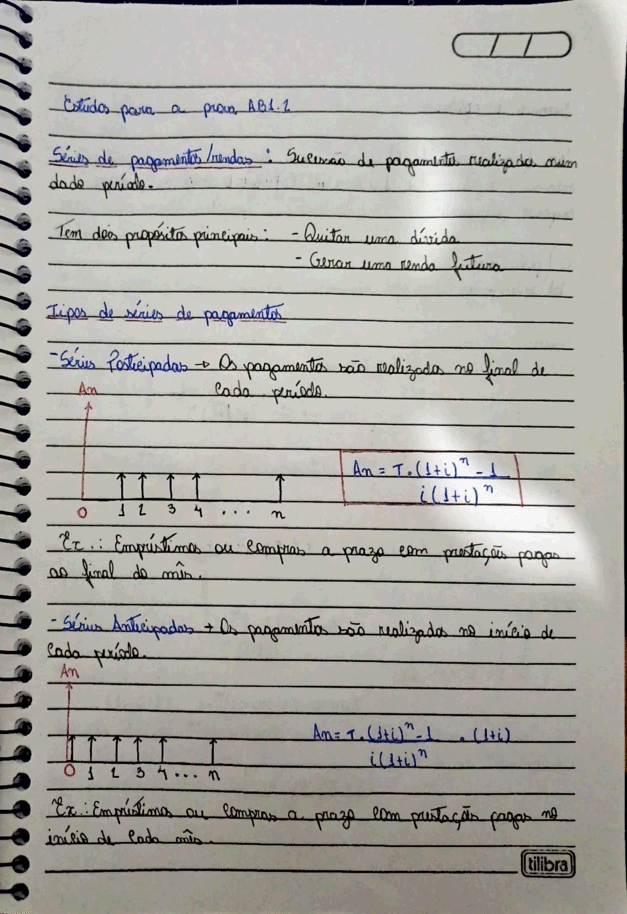 Estudos para a prova AB1.2
Séries de pagamentos/rendas: Sucessão de pagamentos realizados num
dado período.
Tem dois propósitos principais: - Quitar uma dívida
- Gerar uma renda futura
Tipos de séries de pagamentos
- Séries Posticipadas → Os pagamentos são realizados no final de
cada período.
An
An = T.(1+i)^n - 1
i(1+i)^n
0 1 2 3 4 ... n
Ex.: Empréstimos ou compras a prazo com prestações pagas
ao final do mês.
- Séries Anticipadas → Os pagamentos são realizados no início de
cada período.
An
An = T.(1+i)^n - 1 . (1+i)
i(1+i)^n
0 1 2 3 4 ... n
Ex.: Empréstimos ou compras a prazo com prestações pagas no
início de cada mês.
tilibra